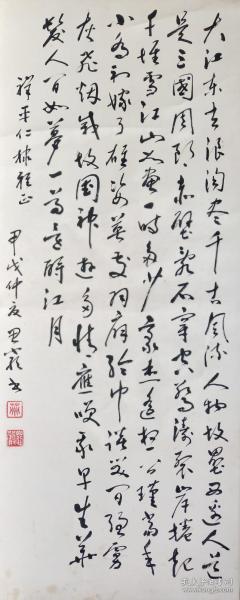 大江东去浪淘尽千古风流人物故垒西边人道
是三國周郎赤壁乱石穿空惊涛裂岸捲起
千堆雪江山如画一时多少豪杰遥想公瑾当年
小乔初嫁了雄姿英发羽扇纶巾谈笑间强虏
灰飞烟灭故國神游多情应笑我早生华
发人间如梦一尊还酹江月
仁棣雅正
甲戌仲夏